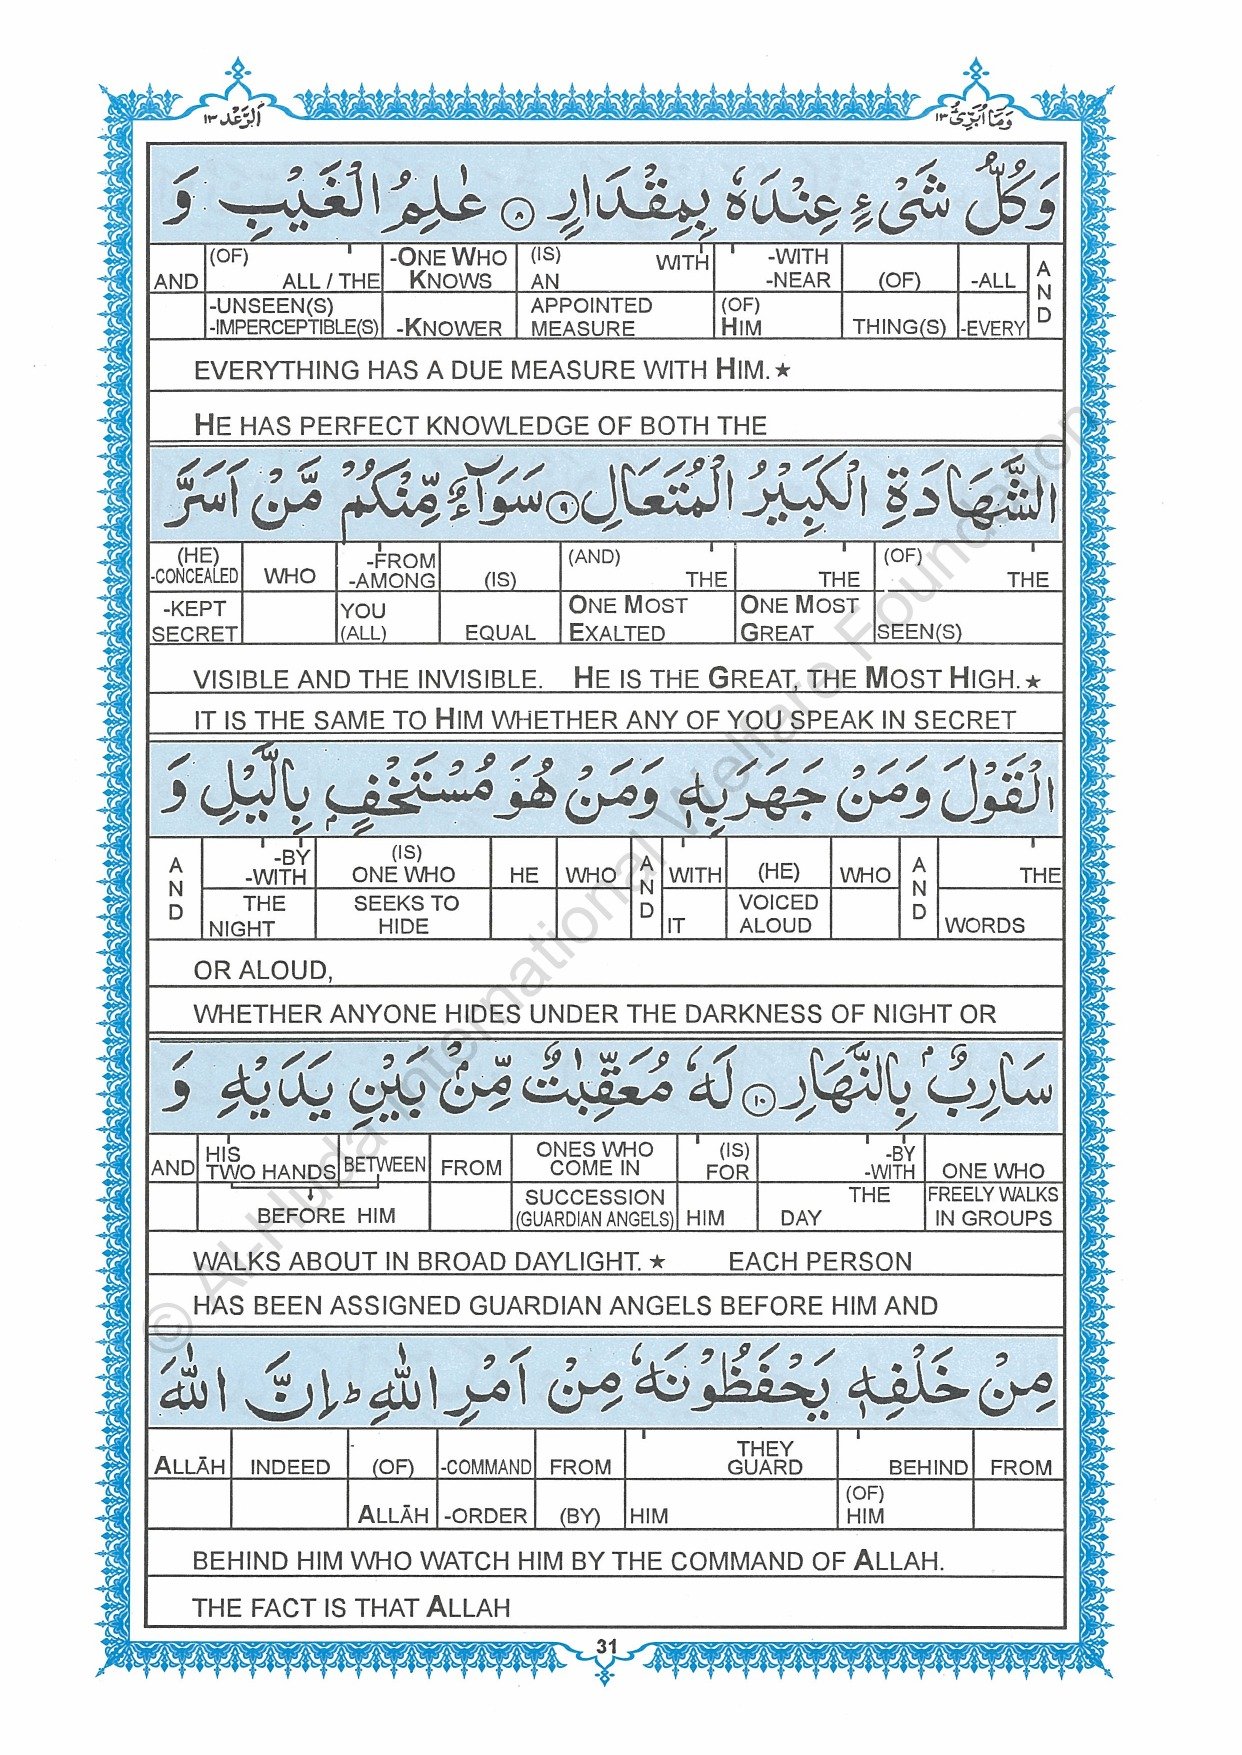 وَمَا اُبَرِّئُ ١٣
اَلرَّعْد ١٣
وَكُلُّ شَیْءٍ عِنْدَهٗ بِمِقْدَارٍ ۝٨ عٰلِمُ الْغَیْبِ وَ
AND (OF) ALL / THE -ONE WHO KNOWS (IS) AN WITH -WITH -NEAR (OF) -ALL AND
-UNSEEN(S) -IMPERCEPTIBLE(S) -KNOWER APPOINTED MEASURE (OF) HIM THING(S) -EVERY
EVERYTHING HAS A DUE MEASURE WITH HIM.★
HE HAS PERFECT KNOWLEDGE OF BOTH THE
الشَّهَادَةِ الْكَبِیْرُ الْمُتَعَالِ ۝٩ سَوَآءٌ مِّنْكُمْ مَّنْ اَسَرَّ
(HE) -CONCEALED WHO -FROM -AMONG (IS) (AND) THE THE (OF) THE
-KEPT SECRET YOU (ALL) EQUAL ONE MOST EXALTED ONE MOST GREAT SEEN(S)
VISIBLE AND THE INVISIBLE. HE IS THE GREAT, THE MOST HIGH.★
IT IS THE SAME TO HIM WHETHER ANY OF YOU SPEAK IN SECRET
الْقَوْلَ وَمَنْ جَهَرَ بِهٖ وَمَنْ هُوَ مُسْتَخْفٍۭ بِالَّیْلِ وَ
AND -BY -WITH (IS) ONE WHO HE WHO AND WITH (HE) WHO AND THE
THE NIGHT SEEKS TO HIDE IT VOICED ALOUD WORDS
OR ALOUD,
WHETHER ANYONE HIDES UNDER THE DARKNESS OF NIGHT OR
سَارِبٌۢ بِالنَّهَارِ ۝١٠ لَهٗ مُعَقِّبٰتٌ مِّنْۢ بَیْنِ یَدَیْهِ وَ
AND HIS TWO HANDS BETWEEN FROM ONES WHO COME IN (IS) FOR -BY -WITH ONE WHO
BEFORE HIM SUCCESSION (GUARDIAN ANGELS) HIM DAY THE FREELY WALKS IN GROUPS
WALKS ABOUT IN BROAD DAYLIGHT.★ EACH PERSON
HAS BEEN ASSIGNED GUARDIAN ANGELS BEFORE HIM AND
مِنْ خَلْفِهٖ یَحْفَظُوْنَهٗ مِنْ اَمْرِ اللّٰهِ ؕ اِنَّ اللّٰهَ
ALLĀH INDEED (OF) -COMMAND FROM THEY GUARD BEHIND FROM
ALLĀH -ORDER (BY) HIM (OF) HIM
BEHIND HIM WHO WATCH HIM BY THE COMMAND OF ALLAH.
THE FACT IS THAT ALLAH
31
© Al-Huda International Welfare Foundation